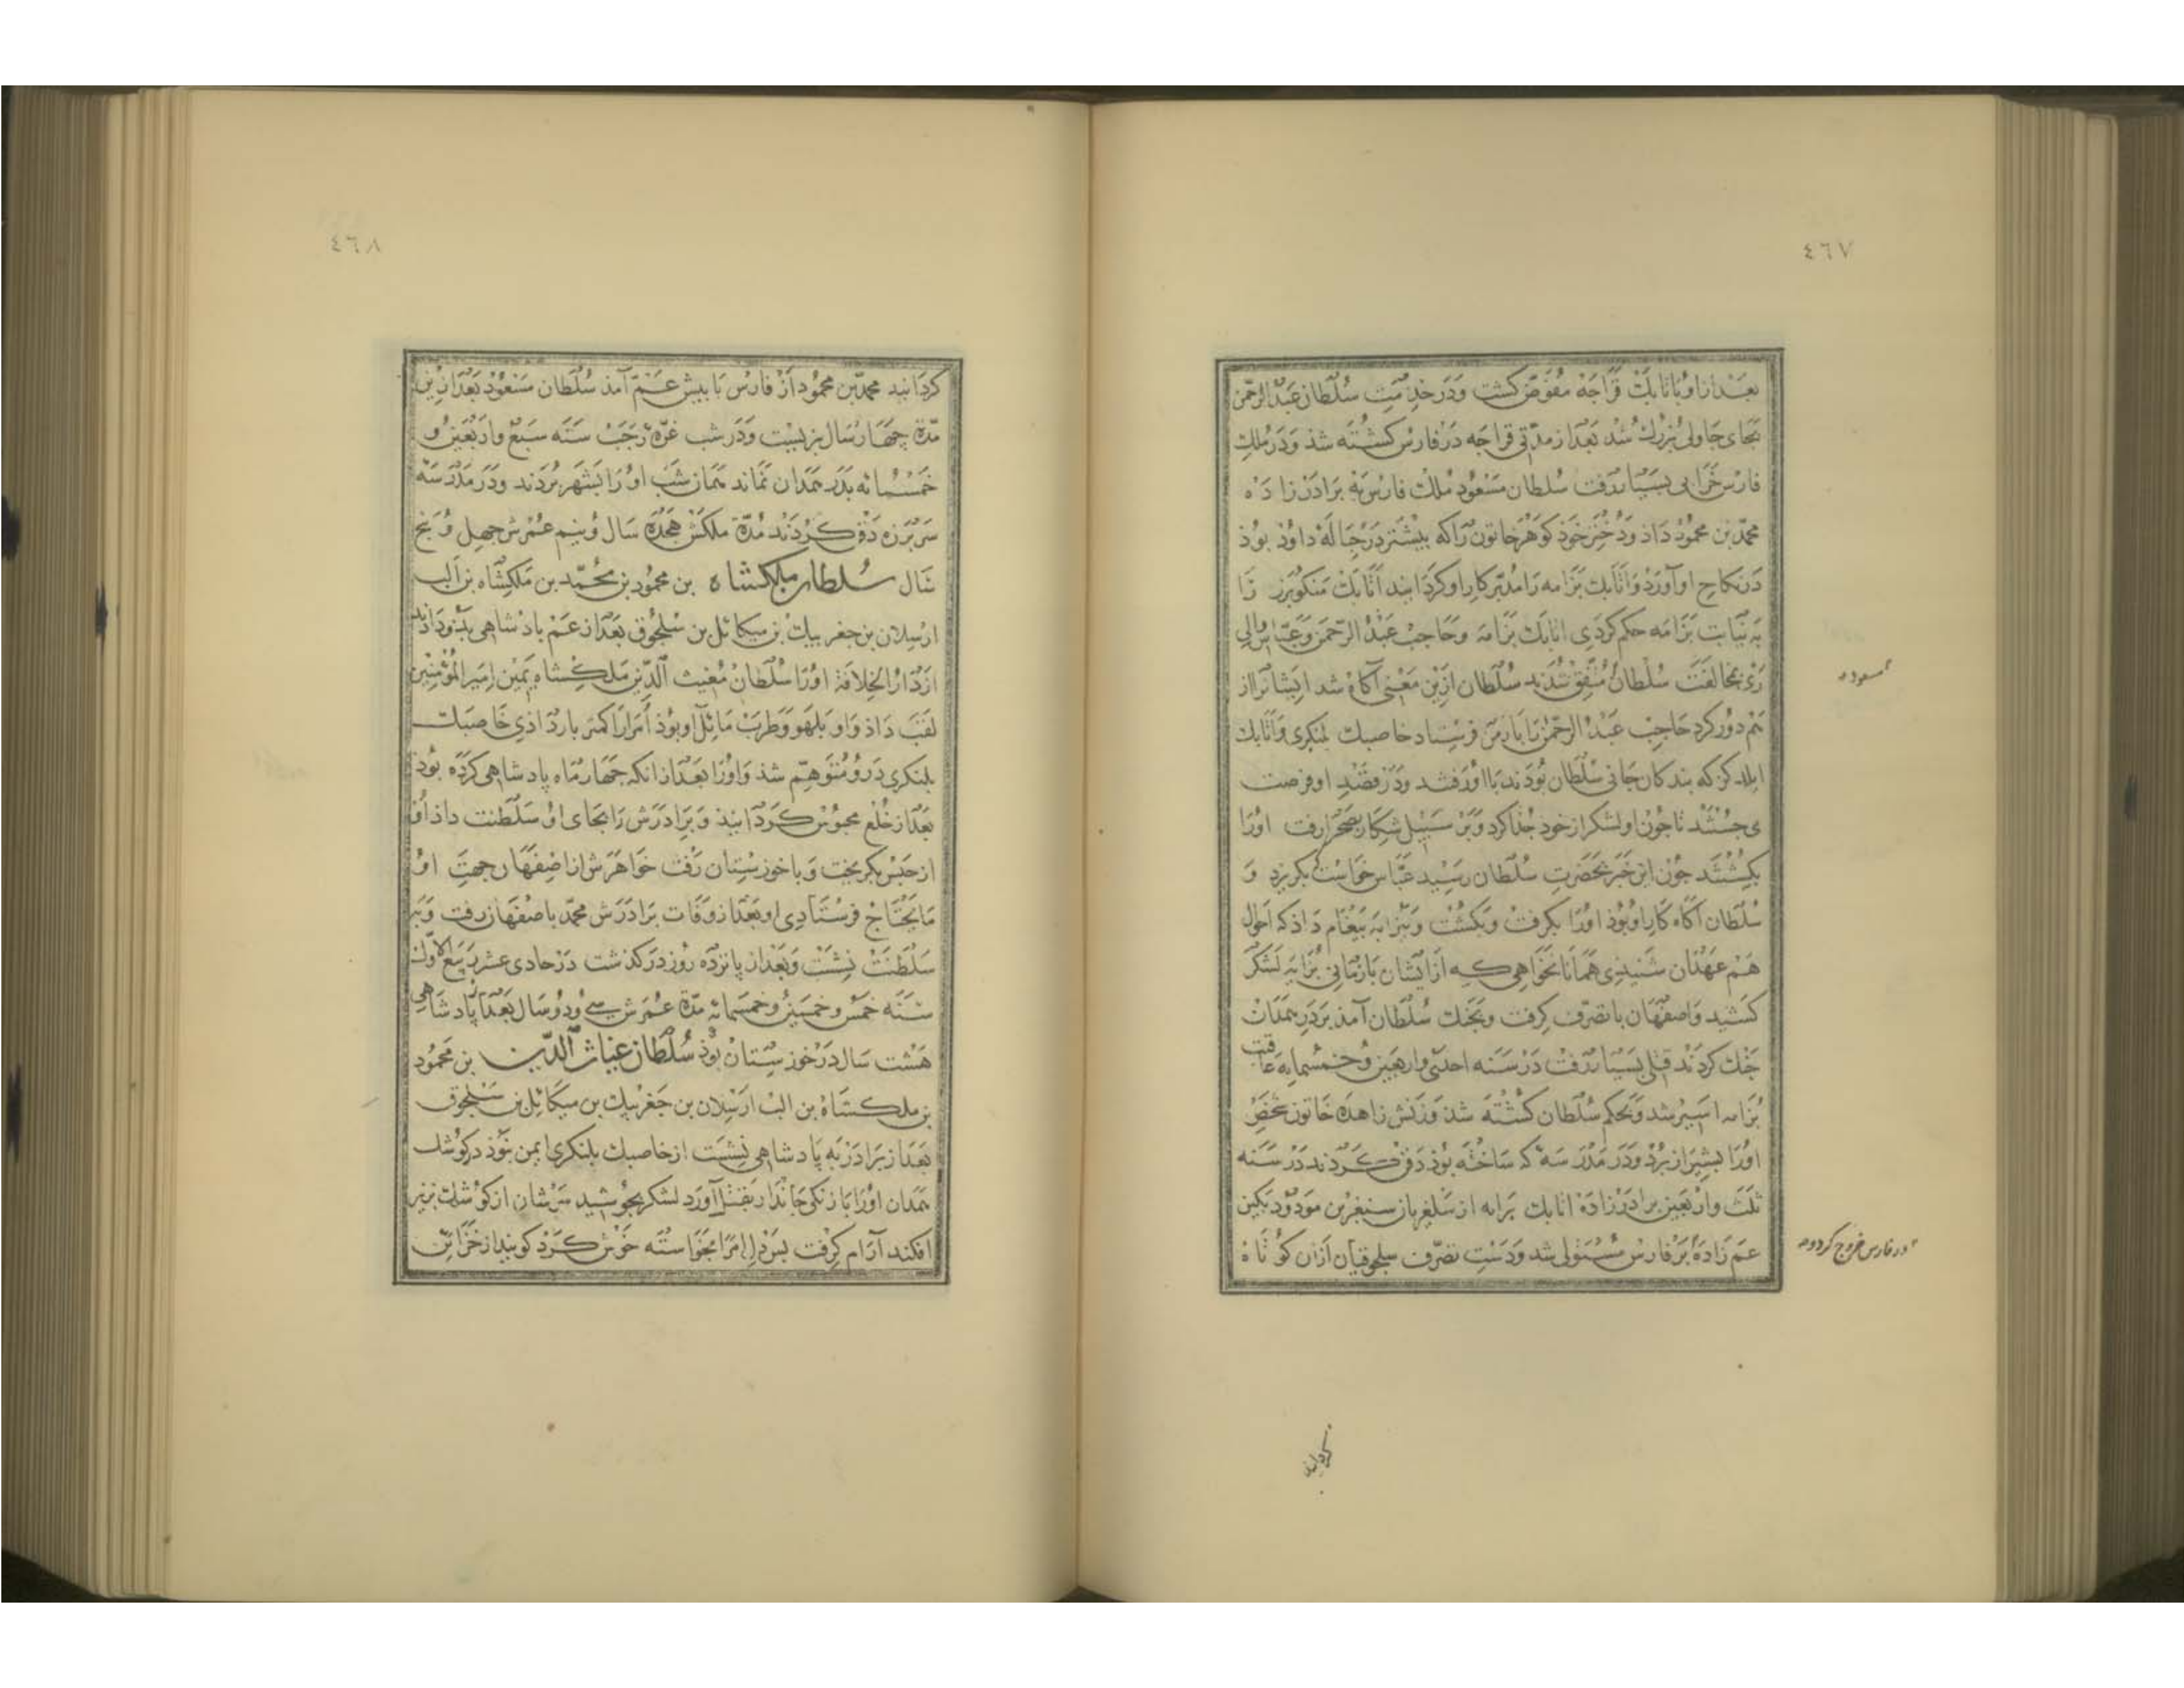 ٤٦٧
بعد ازاو باتابك قراجه مفوض كشت ودر خدمت سلطان عبد الرحمن
بجای جاولی بزرك شد بعد از مدتی قراجه در فارس كشته شد ودر ملك
فارس خرابی بسیار رفت سلطان مسعود ملك فارس به برادر زاده
محمد بن محمود داذ ودختر خوذ كوهر خاتون را كه بیشتر در حباله داوذ بوذ
در نكاح او آورد واتابك بزابه را مدبر كار او كردانید اتابك منكوبرز را
به نیابت بزابه حكم كردی اتابك بزابه وحاجب عبد الرحمن وعباس والی
ری بمخالفت سلطان متفق شدند سلطان ازین معنی آكاه شد ایشانرا از
مسعود
هم دور كرد حاجب عبد الرحمن را بارمن فرستاد خاصبك بلنكری واتابك
ایلدكز كه بندكان جانی سلطان بودند با او رفتند ودر قصد او فرصت
می جستند تا جون او لشكر از خود جدا كرد وبر سبیل شكار بصحرا رفت اورا
بكشتند جون این خبر بحضرت سلطان رسید عباس خواست بكریزد و
سلطان آكاه كار او بوذ اورا بكرفت وبكشت وببزابه بیغام داذ كه احوال
هم عهدان شنیذی همانا نخواهی كه از ایشان بازمانی بزابه لشكر
كشید واصفهان با تصرف كرفت وبجنك سلطان آمذ بر در همدان
جنك كردند قتلی بسیار رفت در سنه احدی واربعین وخمسمایه عاقبت
بزابه اسیر شد وبحكم سلطان كشته شذ وزنش زاهده خاتون شخص
اورا بشیراز برد ودر مدرسه كه ساخته بوذ دفن كردند در سنه
ثلث واربعین برادر زاده اتابك بزابه از سلغریان سنقر بن مودود بكین
عم زاده بر فارس مستولی شد ودست تصرف سلجوقیان ازان كوتاه
در فارس خروج كرد و
كردانید
٤٦٨
كردانید محمد بن محمود از فارس با بیش عم آمذ سلطان مسعود بعد ازین
مدة جهار سال بزیست ودر شب غره رجب سنه سبع واربعین و
خمسمائه بدر همدان نماند همان شب اورا بشهر بردند ودر مدرسه
سربرزه دفن كردند مدة ملكش هجده سال ونیم عمرش جهل وبنج
سال سلطان ملكشاه بن محمود بن محمد بن ملكشاه بن الب
ارسلان بن جغر بیك بن میكائل بن سلجوق بعد از عم بادشاهی بدو دادند
از دار الخلافة اورا سلطان مغیث الدین ملكشاه یمین امیر المؤمنین
لقب داذ واو بلهو وطرب مائل او بوذ امرا را كمتر بار داذی خاصبك
بلنكری درو متوهم شذ واورا بعد ازانكه جهار ماه پادشاهی كرده بوذ
بعد از خلع محبوس كردانیذ وبرادرش را بجای او سلطنت داذ او
از حبس بكریخت وبا خوزستان رفت خواهرش از اصفهان جهت او
ما یحتاج فرستادی او بعد از وفات برادرش محمد باصفهان رفت وبر
سلطنت نشست وبعد از پانزده روز در كذشت در حادی عشر ربیع الاول
سنه خمس وخمسین وخمسمائه مدة عمرش سی ودو سال بعد از پادشاهی
هشت سال در خوزستان بوذ سلطان غیاث الدین بن محمود
بن ملكشاه بن الب ارسلان بن جغر بیك بن میكائل بن سلجوق
بعد از برادر به پادشاهی نشست از خاصبك بلنكری ایمن نبوذ در كوشك
همدان اورا با زنكی جاندار بقتل آورد لشكر بجوشید سرشان از كوشك بزیر
افكند آرام كرفت بس دل امرا بخواسته خوش كرد كویند از خزائن